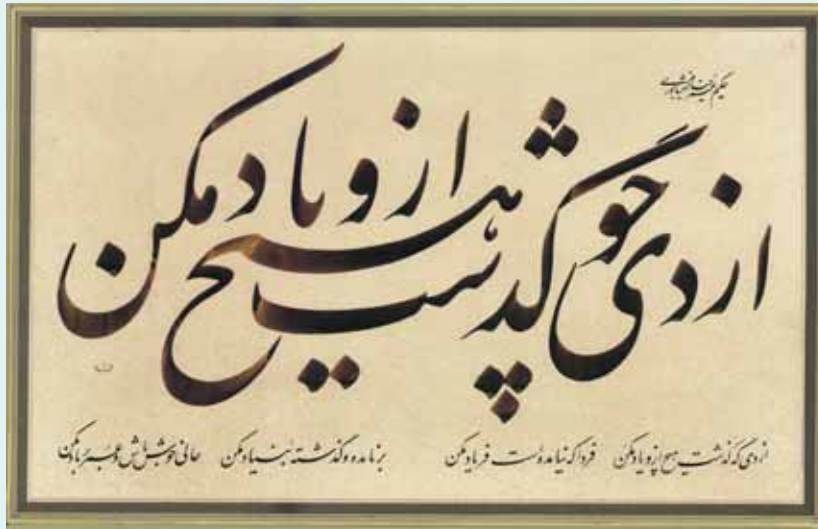 حکیم عمر خیام نیشابوری
از دی چو گذشت هیچ ازو یاد مکن
از دی که گذشت هیچ ازو یاد مکن فردا که نیامده‌ست فریاد مکن بر نامده و گذشته بنیاد مکن حالی خوش باش و عمر بر باد مکن